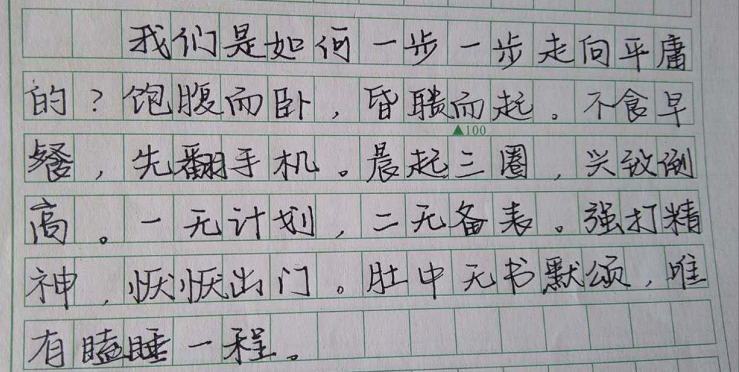 我们是如何一步一步走向平庸
的？饱腹而卧，昏聩而起。不食早
▲100
餐，先翻手机。晨起三圈，兴致倒
高。一无计划，二无备表。强打精
神，恹恹出门。肚中无书默颂，唯
有瞌睡一程。